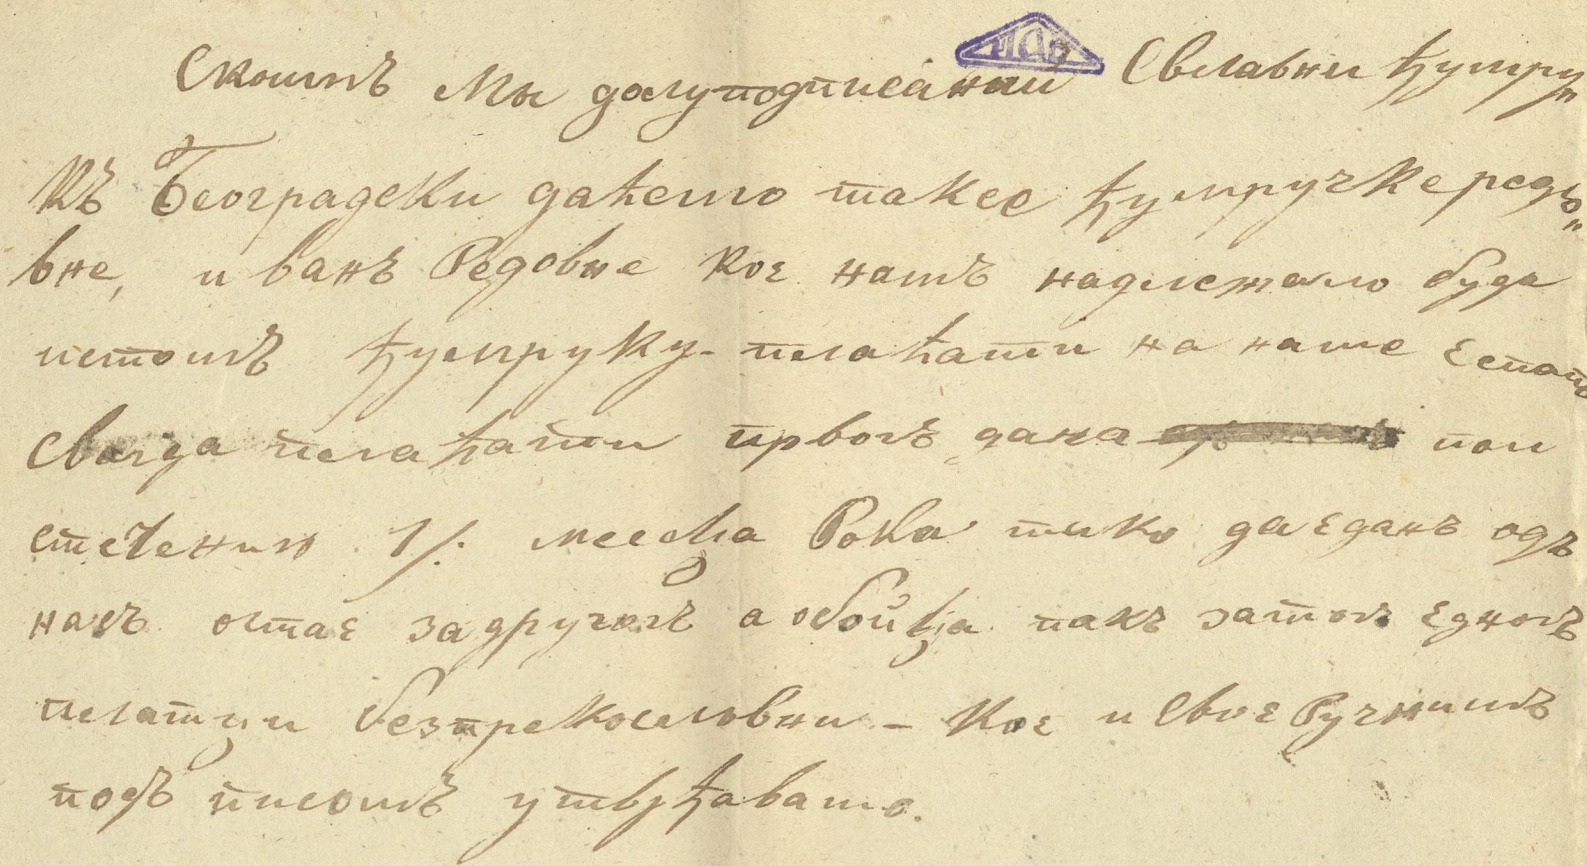 Скоимъ Мы долуподписании Славни ђумру„
къ Београдски даћемо таксе ђумручке редо„
вне, и ванъ Редовне кое намъ надлежало буде
истомъ ђумруку - плаћати на наше Еспапе
Свагда плаћати првогъ дана пои
стечении 1/. месеца Рока тако да еданъ одъ
насъ остае за другогъ а обоица пакъ затогъ едногъ
платци безпрекословни - Кое и СвоеРучнимъ
подъ писомъ утврђавамо.